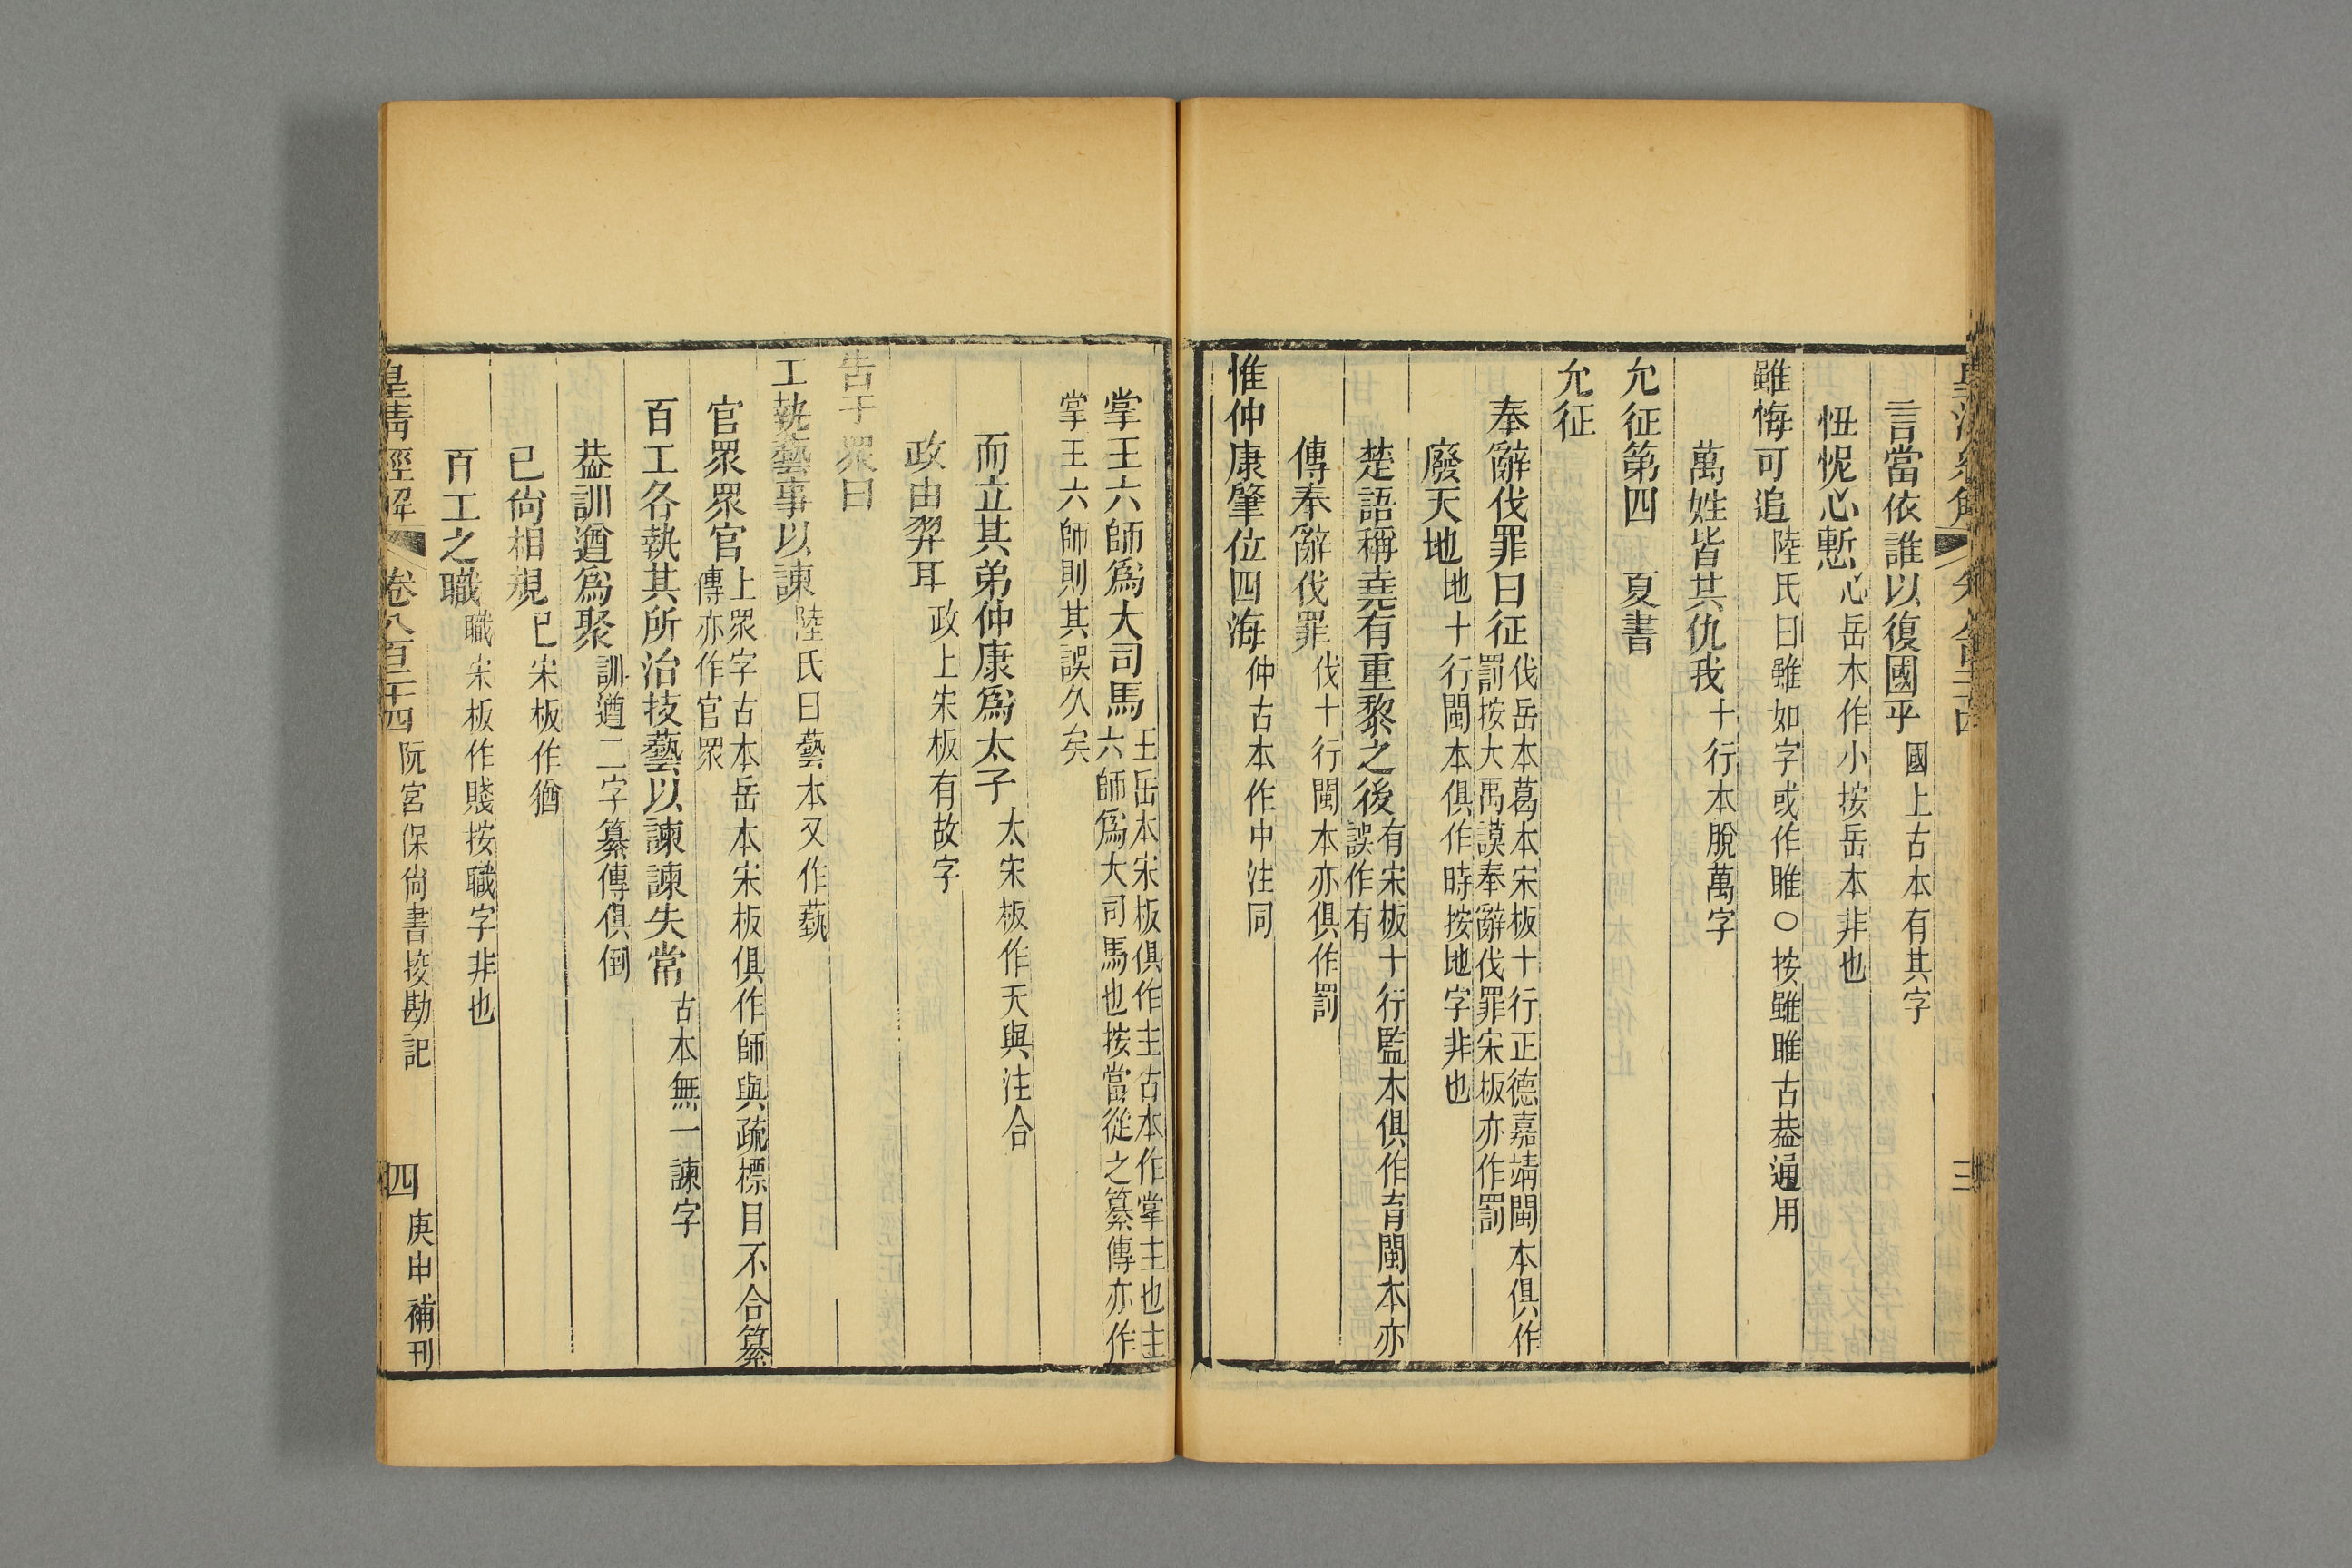 言當依誰以復國乎國上古本有其字
忸怩心慙心岳本作小按岳本非也
雖悔可追陸氏曰雖如字或作睢○按雖睢古葢通用
萬姓皆其仇我十行本脫萬字
允征第四　夏書
允征
奉辭伐罪曰征伐岳本葛本宋板十行正德嘉靖閩本俱作罰按大禹謨奉辭伐罪宋板亦作罰
廢天地地十行閩本俱作時按地字非也
楚語稱堯有重黎之後有宋板十行監本俱作育閩本亦誤作有
傳奉辭伐罪伐十行閩本亦俱作罰
惟仲康肇位四海仲古本作中注同
掌王六師爲大司馬王岳本宋板俱作主古本作掌主也主六師爲大司馬也按當從之纂傳亦作
掌王六師則其誤久矣
而立其弟仲康爲太子太宋板作天與注合
政由羿耳政上宋板有故字
告于眾曰
工執藝事以諫陸氏曰藝本又作蓺
官眾眾官上眾字古本岳本宋板俱作師與疏標目不合纂傳亦作官眾
百工各執其所治技藝以諫諫失常古本無一諫字
葢訓遒爲聚訓遒二字纂傳俱倒
已尙相規已宋板作猶
百工之職職宋板作賤按職字非也
皇清經解　卷八百二十四　阮宮保尙書挍勘記　四　庚申補刊